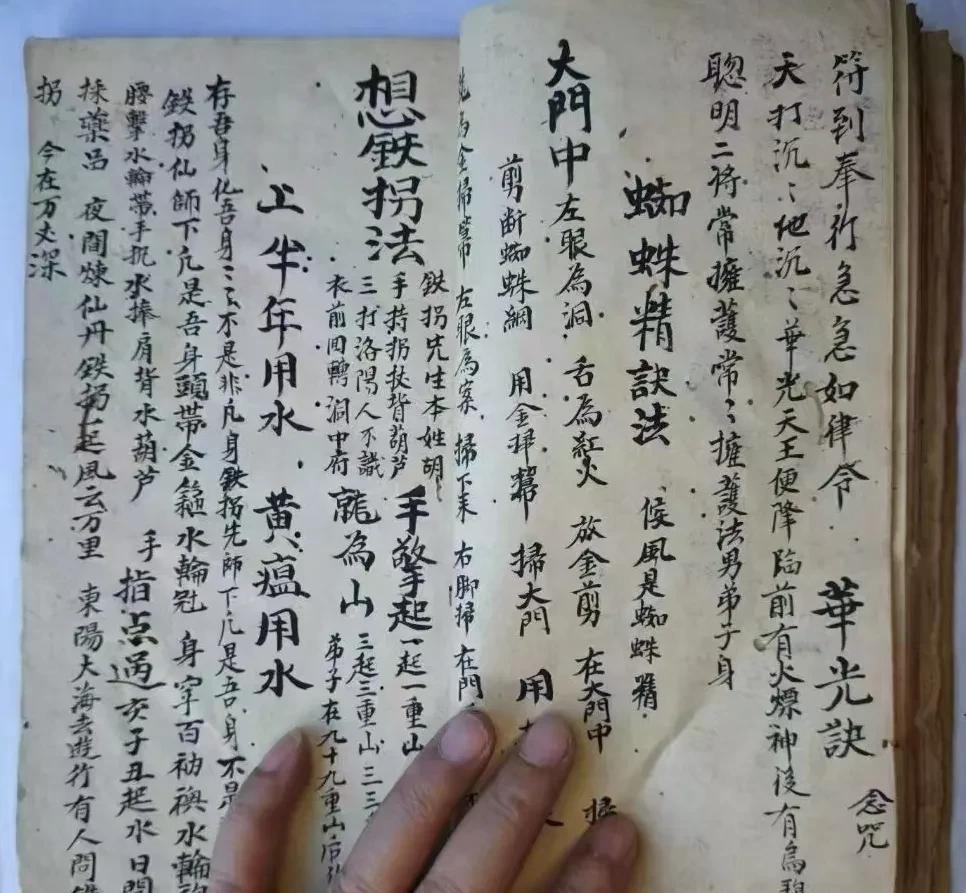 符到奉行急急如律令 華光訣 念咒
天打沉〻地沉〻華光天王便降臨前有火煙神後有烏
聰明二将常擁護常〻擁護法男弟子身
蜘蛛精訣法 候風是蜘蛛精
大門中左眼為洞 舌為紅火 放金剪 在大門中
剪断蜘蛛網 用金掃 掃大門 用
為金掃 左眼為案 掃下来 右脚掃 在門
想鉄拐法
鉄拐先生本姓胡
手持拐扙背葫芦
三打洛陽人不識
衣前回轉洞中府
手擎起一起一重山
龍為山三起三重山三三
弟子在九十九重山后
上半年用水 黄瘟用水
存吾身化吾身〻〻不是非凢身鉄拐先師下凢是吾身不是
鉄拐仙師下凢是吾身頭带金箍水輪冠 身穿百衲襖水輪
腰擊水輪帶手扼水捧肩背水葫芦 手指点過亥子丑起水日間
採藥品 夜間煉仙丹鉄拐起風云万里 東陽大海去遊行有人問
拐 今在万丈深